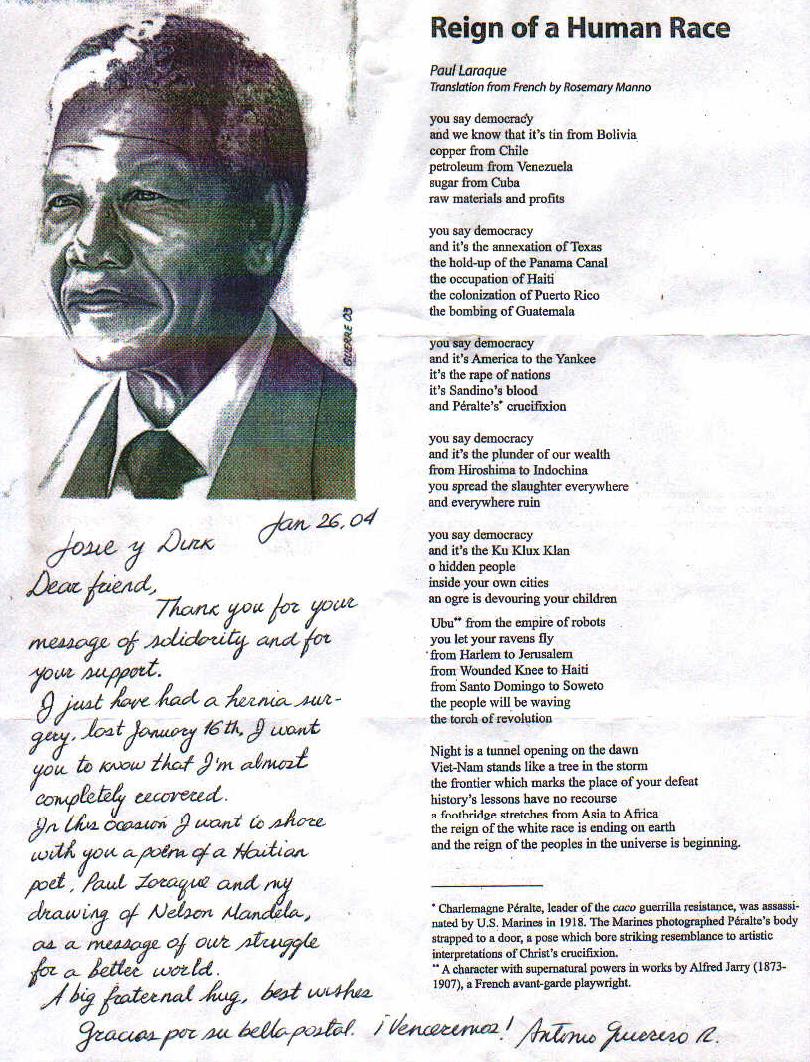 GUERRE 03
Jan 26, 04
Josie y Dirk
Dear friend,
Thank you for your
message of solidority and for
your support.
I just have had a hernia sur-
gery, last January 16th, I want
you to know that I'm almost
completely recovered.
In this ocasion I want to share
with you a poem of a Haitian
poet, Paul Laraque and my
drawing of Nelson Mandela,
as a message of our struggle
for a better world.
A big fraternal hug, best wishes
Gracias por su bella postal. ¡Venceremos! Antonio Guerrero R.
Reign of a Human Race
Paul Laraque
Translation from French by Rosemary Manno
you say democracy
and we know that it's tin from Bolivia
copper from Chile
petroleum from Venezuela
sugar from Cuba
raw materials and profits
you say democracy
and it's the annexation of Texas
the hold-up of the Panama Canal
the occupation of Haiti
the colonization of Puerto Rico
the bombing of Guatemala
you say democracy
and it's America to the Yankee
it's the rape of nations
it's Sandino's blood
and Péralte's* crucifixion
you say democracy
and it's the plunder of our wealth
from Hiroshima to Indochina
you spread the slaughter everywhere
and everywhere ruin
you say democracy
and it's the Ku Klux Klan
o hidden people
inside your own cities
an ogre is devouring your children
Ubu** from the empire of robots
you let your ravens fly
from Harlem to Jerusalem
from Wounded Knee to Haiti
from Santo Domingo to Soweto
the people will be waving
the torch of revolution
Night is a tunnel opening on the dawn
Viet-Nam stands like a tree in the storm
the frontier which marks the place of your defeat
history's lessons have no recourse
a footbridge stretches from Asia to Africa
the reign of the white race is ending on earth
and the reign of the peoples in the universe is beginning.
* Charlemagne Péralte, leader of the caco guerrilla resistance, was assassi-
nated by U.S. Marines in 1918. The Marines photographed Péralte's body
strapped to a door, a pose which bore striking resemblance to artistic
interpretations of Christ's crucifixion.
** A character with supernatural powers in works by Alfred Jarry (1873-
1907), a French avant-garde playwright.